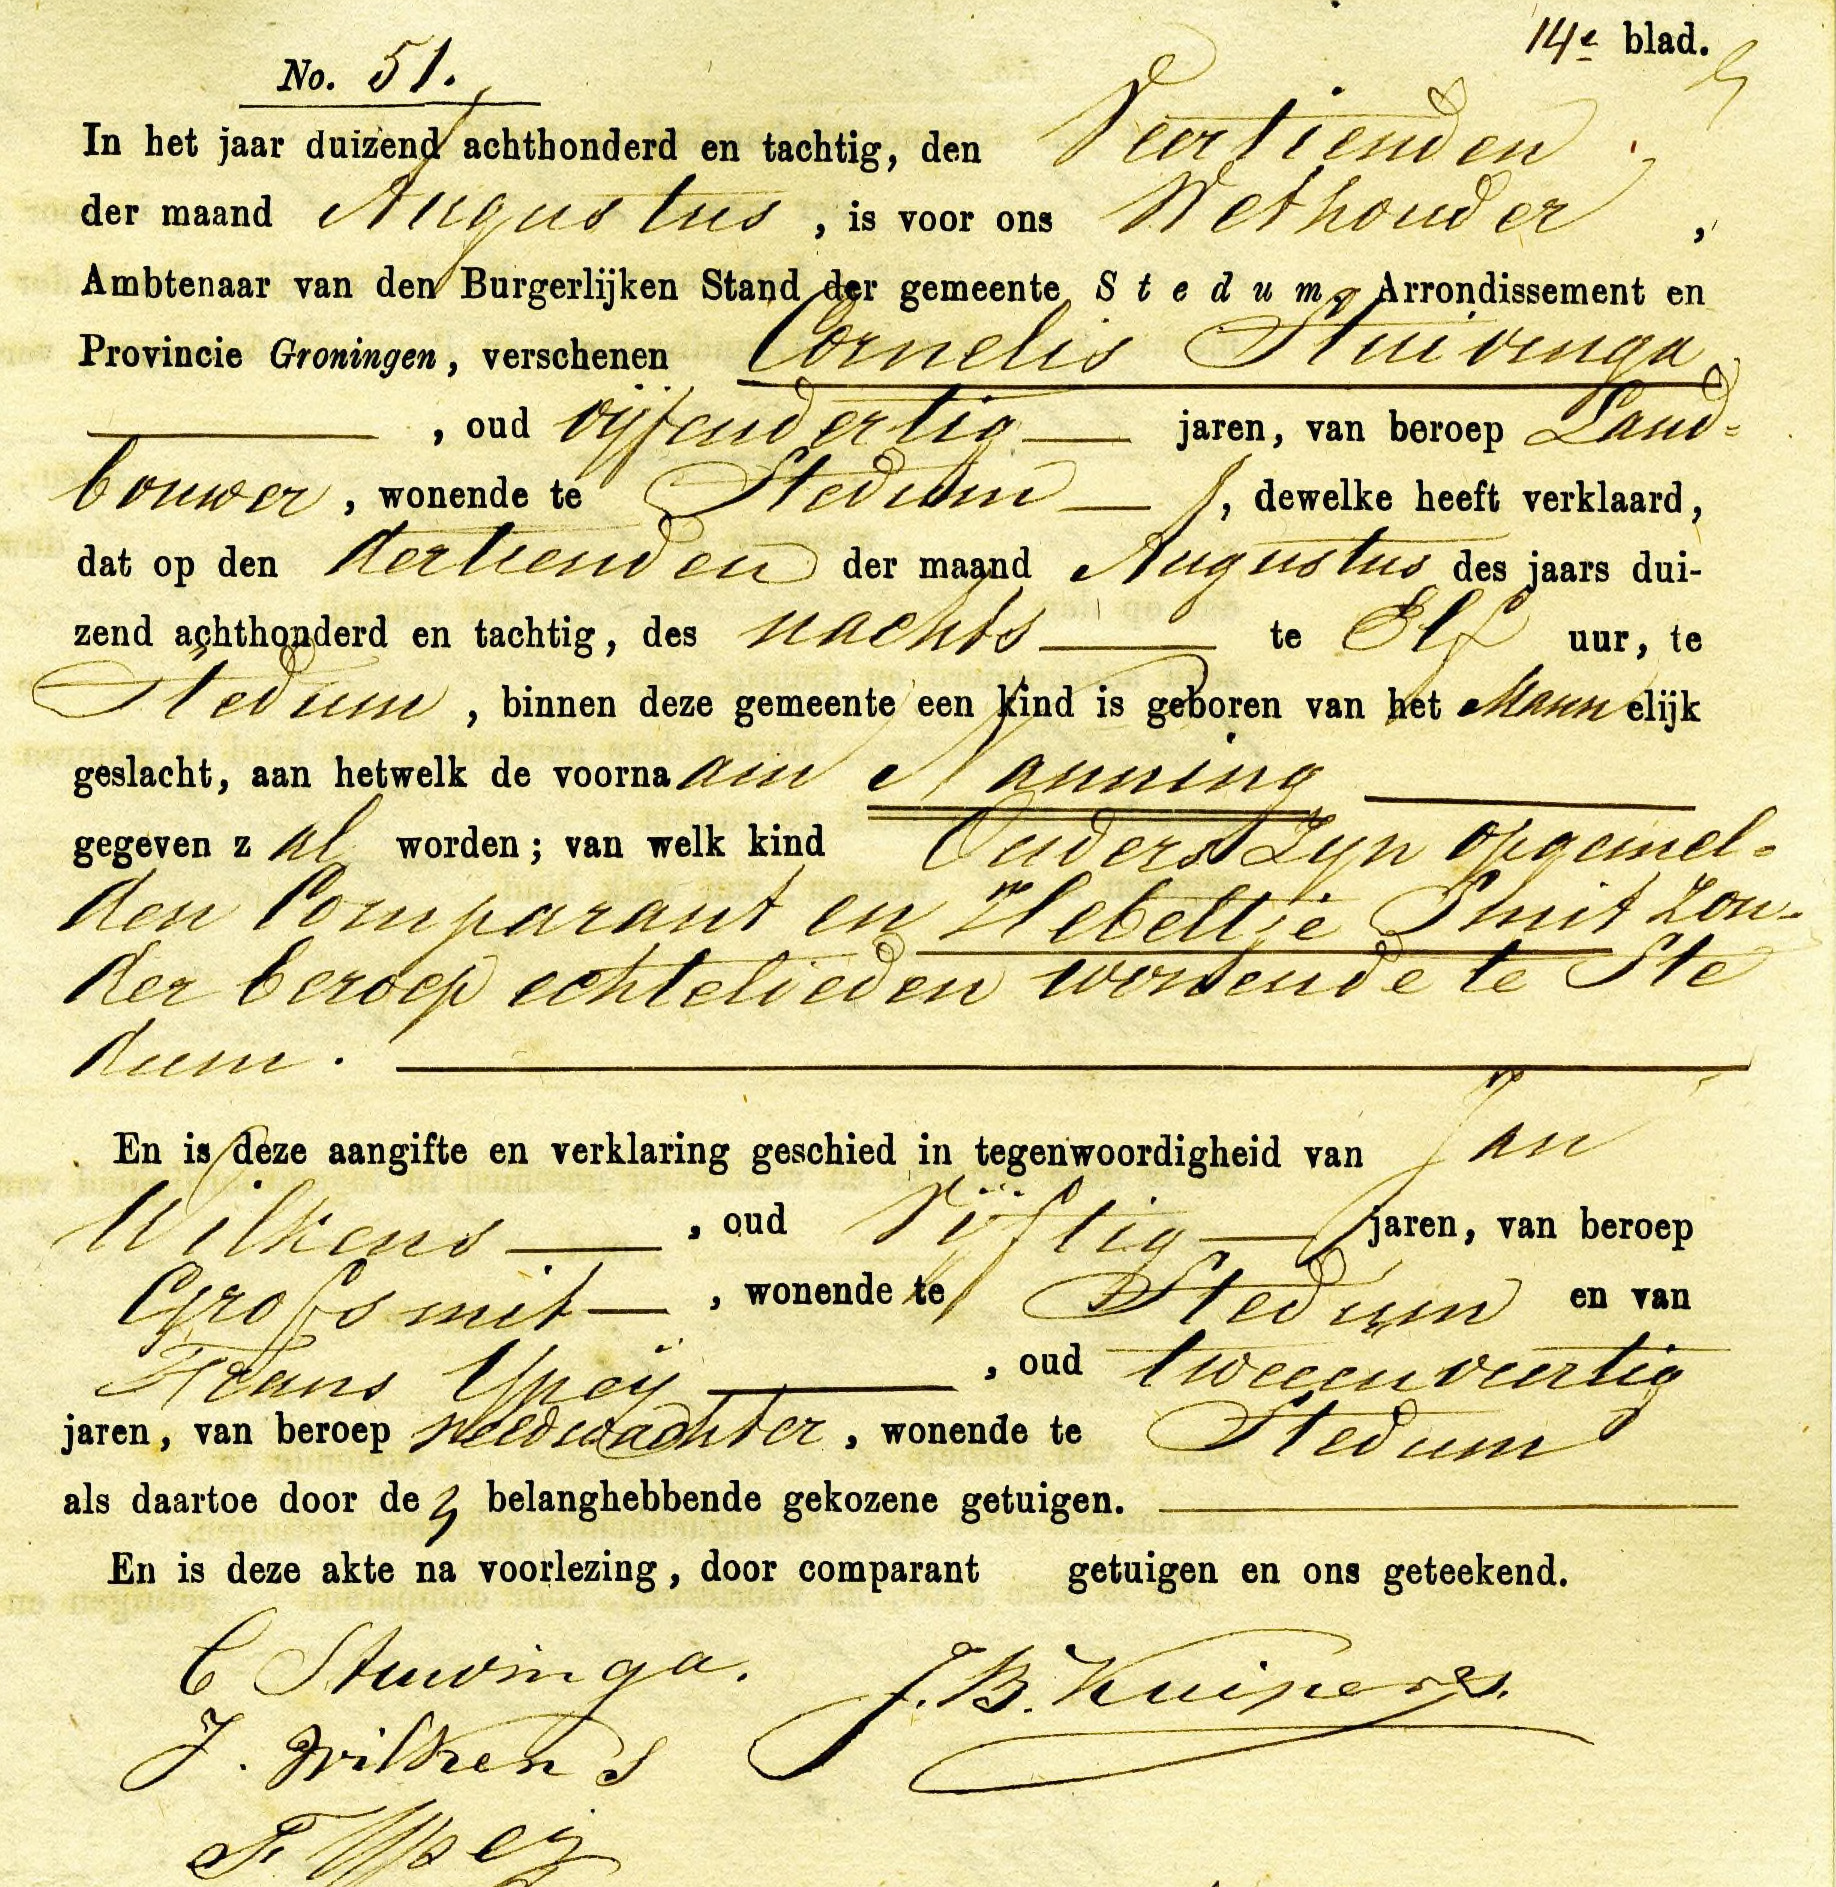 14e blad.
No. 51.
In het jaar duizend achthonderd en tachtig, den Veertienden
der maand Augustus, is voor ons Wethouder,
Ambtenaar van den Burgerlijken Stand der gemeente Stedum, Arrondissement en
Provincie Groningen, verschenen Cornelis Stuivinga
, oud vijfendertig jaren, van beroep Land-
bouwer, wonende te Stedum, dewelke heeft verklaard,
dat op den dertienden der maand Augustus des jaars dui-
zend achthonderd en tachtig, des nachts te Elf uur, te
Stedum, binnen deze gemeente een kind is geboren van het Mannelijk
geslacht, aan hetwelk de voornaam Nanning
gegeven zal worden; van welk kind Ouders zyn opgemel-
den Comparant en Hebeltje Smit zon-
der beroep echtelieden wonende te Ste
dum.
En is deze aangifte en verklaring geschied in tegenwoordigheid van Jan
Wilkens, oud Vijftig jaren, van beroep
Grofsmit, wonende te Stedum en van
Frans Ypeij, oud tweeenveertig
jaren, van beroep veldwachter, wonende te Stedum
als daartoe door de belanghebbende gekozene getuigen.
En is deze akte na voorlezing, door comparant getuigen en ons geteekend.
C Stuivinga. J. B. Kuipers.
J. Wilkens
F. Ypeij